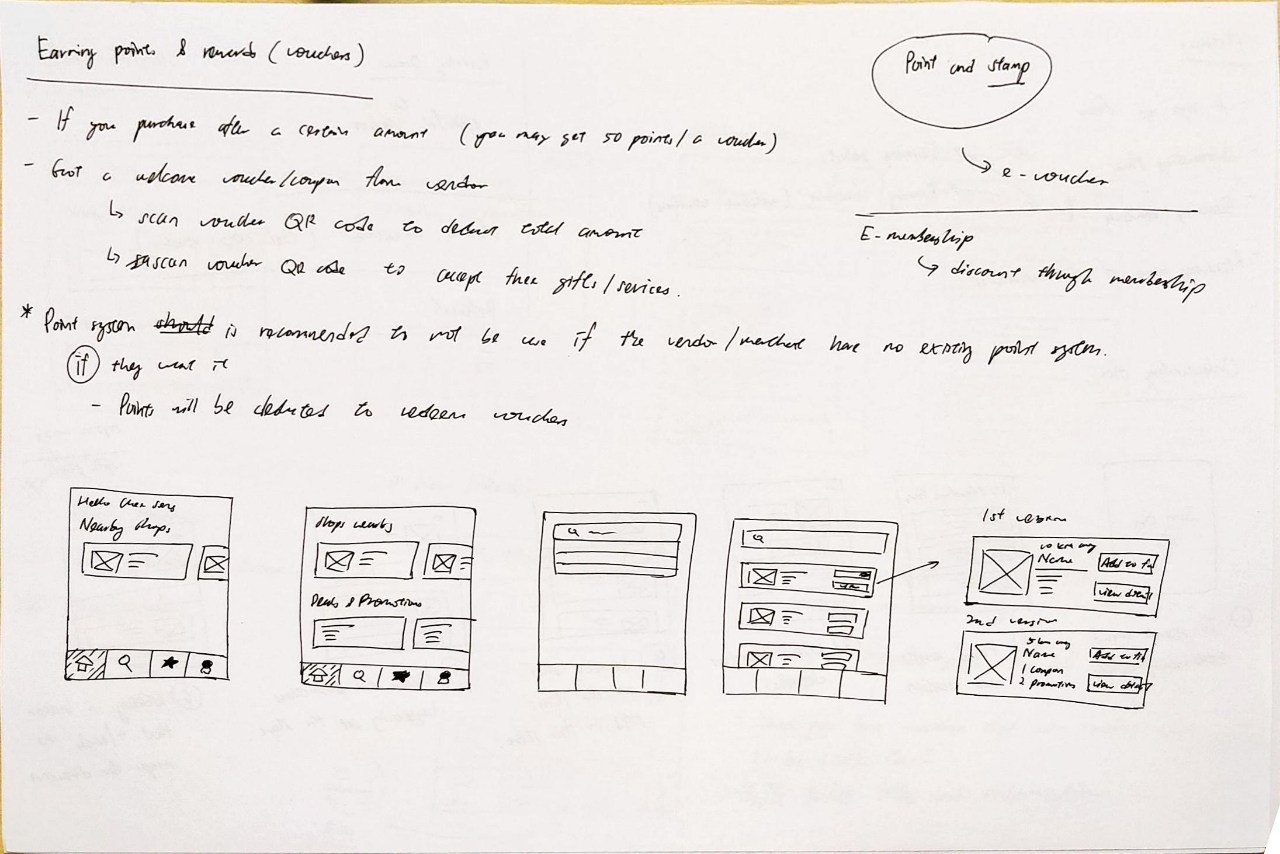 Earning points & rewards (vouchers)
- If you purchase after a certain amount (you may get 50 points/a voucher)
- Got a welcome voucher/coupon from vendor
↳ scan voucher QR code to deduct total amount
↳ scan voucher QR code to accept their gifts/services.
* Point system should is recommended to not be use if the vendor/merchant have no existing point system.
if they want it
- Points will be deducted to redeem vouchers
Point and stamp
↳ e-voucher
E-membership
↳ discount through membership
Hello
Nearby shops
Shops nearby
Deals & Promotions
1st version
Name
Add to
View details
2nd version
Name
1 coupon
2 promotions
Add to
View details